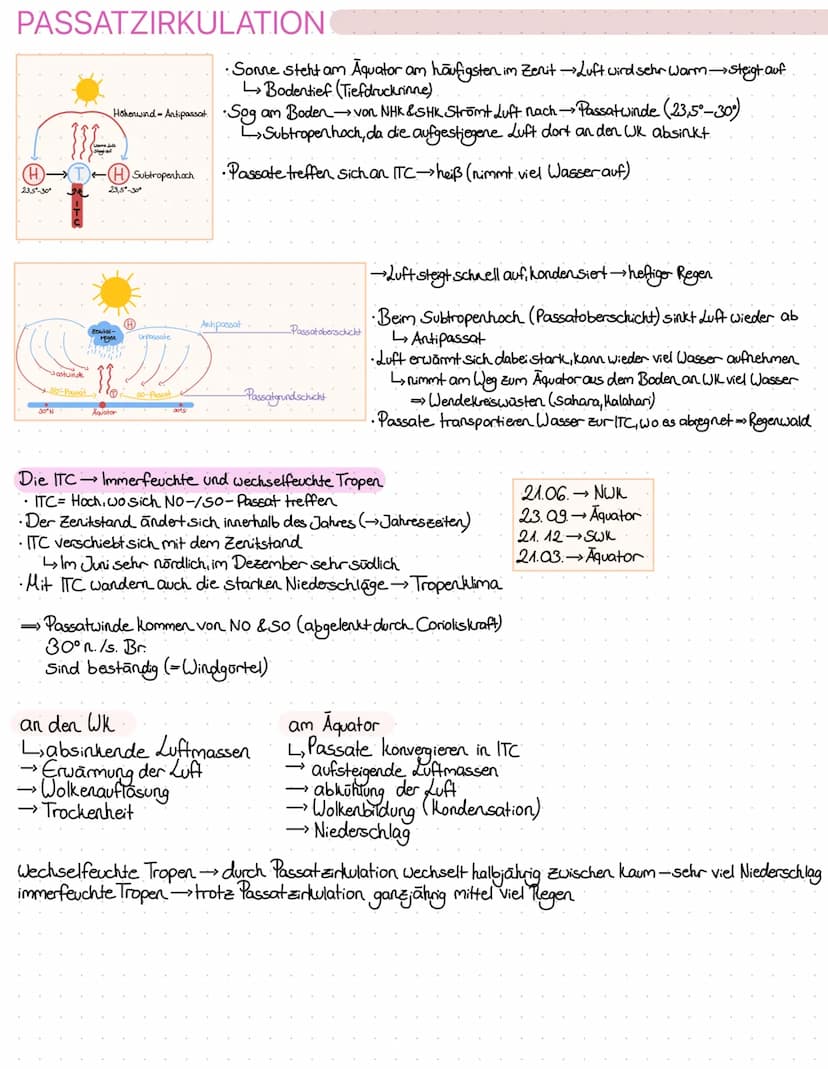 PASSATZIRKULATION
Höhenwind = Antipassat
warme Luft
steigt auf
H → T ← H Subtropenhoch
23,5°-30° 23,5°-30°
ITC
· Sonne steht am Äquator am häufigsten im Zenit → Luft wird sehr warm → steigt auf
↳ Bodentief (Tiefdruckrinne)
· Sog am Boden → von NHK & SHK strömt Luft nach → Passatwinde (23,5°-30°)
↳ Subtropenhoch, da die aufgestiegene Luft dort an den WK absinkt
· Passate treffen sich an ITC → heiß (nimmt viel Wasser auf)
Zenital-
regen
H
Urpassate
Antipassat
Passatoberschicht
Ostwinde
NO-Passat
T
SO-Passat
Passatgrundschicht
30°N
Äquator
30°S
→ Luft steigt schnell auf, kondensiert → heftiger Regen
· Beim Subtropenhoch (Passatoberschicht) sinkt Luft wieder ab
↳ Antipassat
· Luft erwärmt sich dabei stark, kann wieder viel Wasser aufnehmen
↳ nimmt am Weg zum Äquator aus dem Boden an WK viel Wasser
⇒ Wendekreiswüsten (Sahara, Kalahari)
· Passate transportieren Wasser zur ITC, wo es abregnet ⇒ Regenwald
Die ITC → Immerfeuchte und wechselfeuchte Tropen
· ITC = Hoch, wo sich NO-/SO-Passat treffen
· Der Zenitstand ändert sich innerhalb des Jahres (→ Jahreszeiten)
· ITC verschiebt sich mit dem Zenitstand
↳ Im Juni sehr nördlich, im Dezember sehr südlich
· Mit ITC wandern auch die starken Niederschläge → Tropenklima
21.06. → NWK
23.09. → Äquator
21.12 → SWK
21.03. → Äquator
⇒ Passatwinde kommen von NO & SO (abgelenkt durch Corioliskraft)
30° n./s. Br.
Sind beständig (= Windgürtel)
an den WK
↳ absinkende Luftmassen
→ Erwärmung der Luft
→ Wolkenauflösung
→ Trockenheit
am Äquator
↳ Passate konvergieren in ITC
→ aufsteigende Luftmassen
→ abkühlung der Luft
→ Wolkenbildung (Kondensation)
→ Niederschlag
Wechselfeuchte Tropen → durch Passatzirkulation wechselt halbjährig zwischen kaum - sehr viel Niederschlag
immerfeuchte Tropen → trotz Passatzirkulation ganzjährig mittel viel Regen